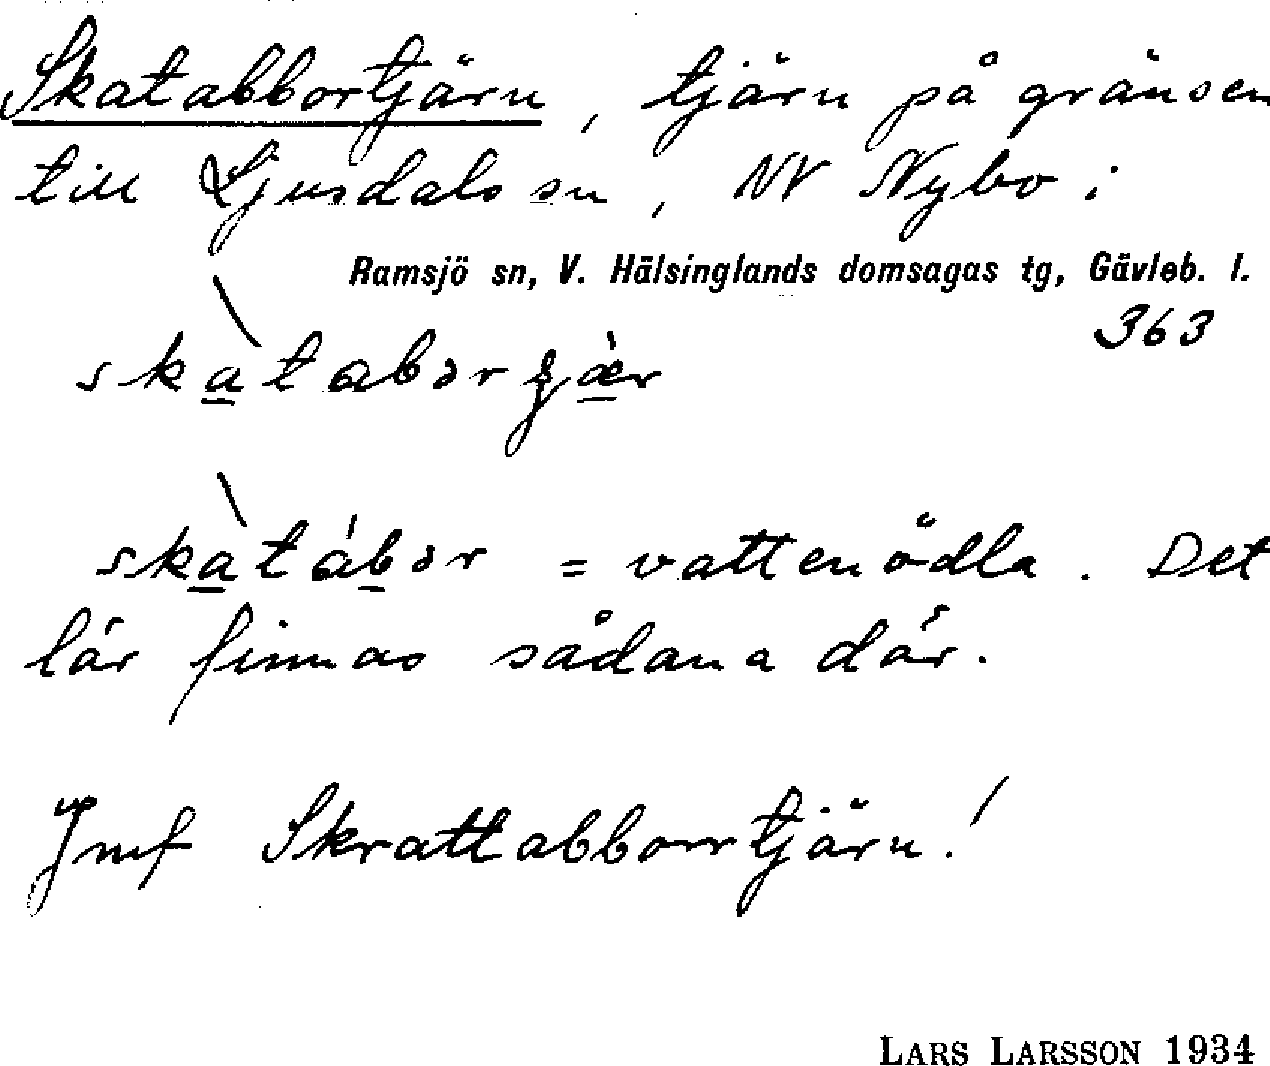 Skatabbortjärn, tjärn på gränsen
till Ljusdals sn, NV Nybo i
Ramsjö sn, V. Hälsinglands domsagas tg, Gävleb. l.
363
skàtabər
skàtábər = vattenödla. Det
lär finnas sådana där.
Jmf Skrattabborrtjärn!
LARS LARSSON 1934